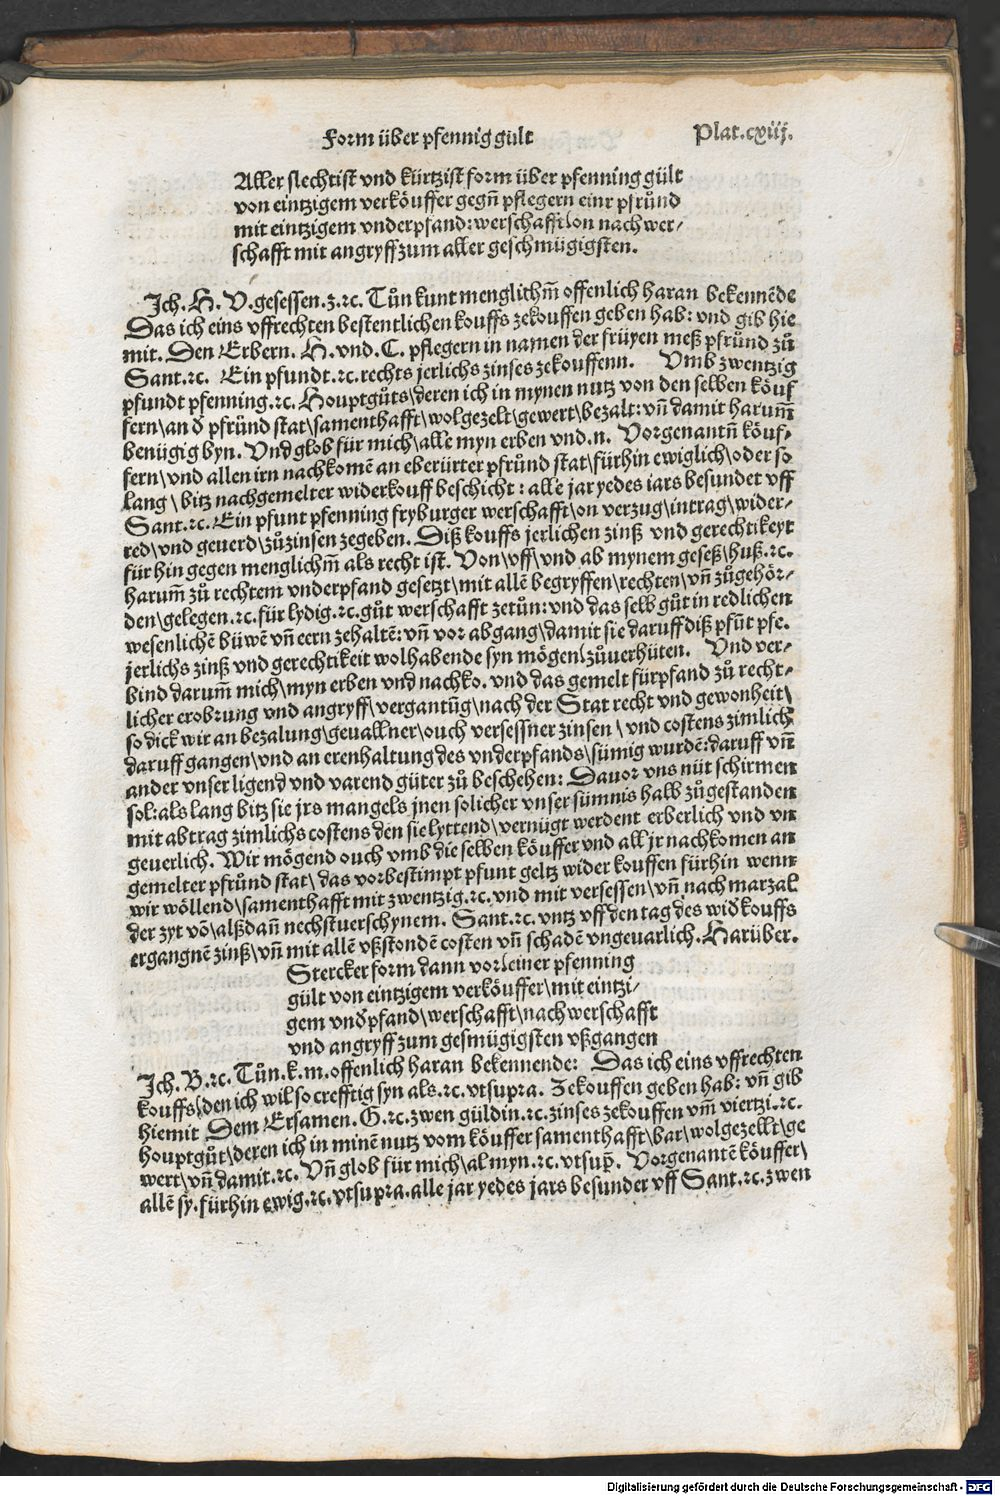 Form über pfennig gült
Plat.cxiij.
Aller slechtist vnd kürtzist form über pfenning gült
von eintzigem verköuffer gegñ pflegern einr pfrůnd
mit eintzigem vnderpfand: werschafft\on nach wer⸗
schafft mit angryff zum aller geschmügigsten.
Jch. H. V. gesessen.z.ꝛc. Tůn kunt menglichm̄ offenlich haran bekennẽde
Das ich eins vffrechten bestentlichen kouffs zekouffen geben hab: vnd gib hie
mit. Den Erbern. H. vnd. C. pflegern in namen der früyen meß pfrůnd zů
Sant.ꝛc. Ein pfundt.ꝛc.rechts jerlichs zinses zekouffenn. Vmb zwentzig
pfundt pfenning.ꝛc.Houptgůts\deren ich in mynen nutz von den selben köuf
fern\an d̕ pfrůnd stat\samenthafft\wolgezelt\gewert\bezalt: vñ damit harum̄
benügig byn. Vnd glob für mich\alle myn erben vnd.n. Vorgenantñ köuf⸗
fern\vnd allen irn nachkomẽ an eberürter pfrůnd stat\fürhin ewiglich\oder so
lang\bitz nachgemelter widerkouff beschicht: alle jar yedes iars besundet vff
Sant.ꝛc. Ein pfunt pfenning fryburger werschafft\on verzug\intrag\wider⸗
red\vnd geuerd\zůzinsen zegeben. Diß kouffs jerlichen zinß vnd gerechtikeyt
für hin gegen menglichm̄ als recht ist. Von\vff\vnd ab mynem geseß\huß.ꝛc.
harum̄ zů rechtem vnderpfand gesetzt\mit allẽ begryffen\rechten\vñ zůgehör⸗
den\gelegen.ꝛc.für lydig.ꝛc.gůt werschafft zetůn: vnd das selb gůt in redlichen
wesenlichẽ büwẽ vñ eern zehaltẽ: vñ vor abgang\damit sie daruff diß pfũt pfe.
jerlichs zinß vnd gerechtikeit wolhabende syn mögen\zůuerhüten. Vnd ver⸗
bind darum̄ mich\myn erben vnd nachko. vnd das gemelt fürpfand zů recht⸗
licher erobrung vnd angryff\vergantũg\nach der Stat recht vnd gewonheit\
so dick wir an bezalung\geuallner\ouch versessner zinsen\vnd costens zimlich
daruff gangen\vnd an erenhaltung des vnderpfands\sümig wurdẽ: daruff vñ
ander vnser ligend vnd varend güter zů beschehen: Dauor vns nüt schirmen
sol: als lang bitz sie jrs mangels jnen solicher vnser sümnis halb zůgestanden
mit abtrag zimlichs costens den sie lyttend\vernügt werdent erberlich vnd vn
geuerlich. Wir mögend ouch vmb die selben köuffer vnd all jr nachkomen an
gemelter pfrůnd stat\das vorbestimpt pfunt geltz wider kouffen fürhin wenn
wir wöllend\samenthafft mit zwentzig.ꝛc.vnd mit versessen\vñ nach marzal
der zyt võ\alßdañ nechstuerschynem. Sant.ꝛc. vntz vff den tag des wid̕kouffs
ergangnẽ zinß\vñ mit allẽ vßstondẽ costen vñ schadẽ vngeuarlich. Harüber.
Stercker form dann vor\einer pfenning
gült von eintzigem verköuffer\mit eintzi⸗
gem vnd̕pfand\werschafft\nach werschafft
vnd angryff zum gesmügigsten vßgangen
Jch.B.ꝛc. Tůn.k.m.offenlich haran bekennende: Das ich eins vffrechten
kouffs\den ich wil so crefftig syn als.ꝛc.vtsupra. Zekouffen geben hab: vñ gib
hiemit Dem Ersamen. G.ꝛc.zwen güldin.ꝛc.zinses zekouffen vm̄ viertzi.ꝛc.
houptgůt\deren ich in minẽ nutz vom köuffer samenthafft\bar\wolgezellt\ge
wert\vñ damit.ꝛc. Vñ glob für mich\al myn.ꝛc.vtsup̄. Vorgenantẽ köuffer\
allẽ sy.fürhin ewig.ꝛc.vtsupra.alle jar yedes jars besunder vff Sant.ꝛc.zwen
Digitalisierung gefördert durch die Deutsche Forschungsgemeinschaft - DFG